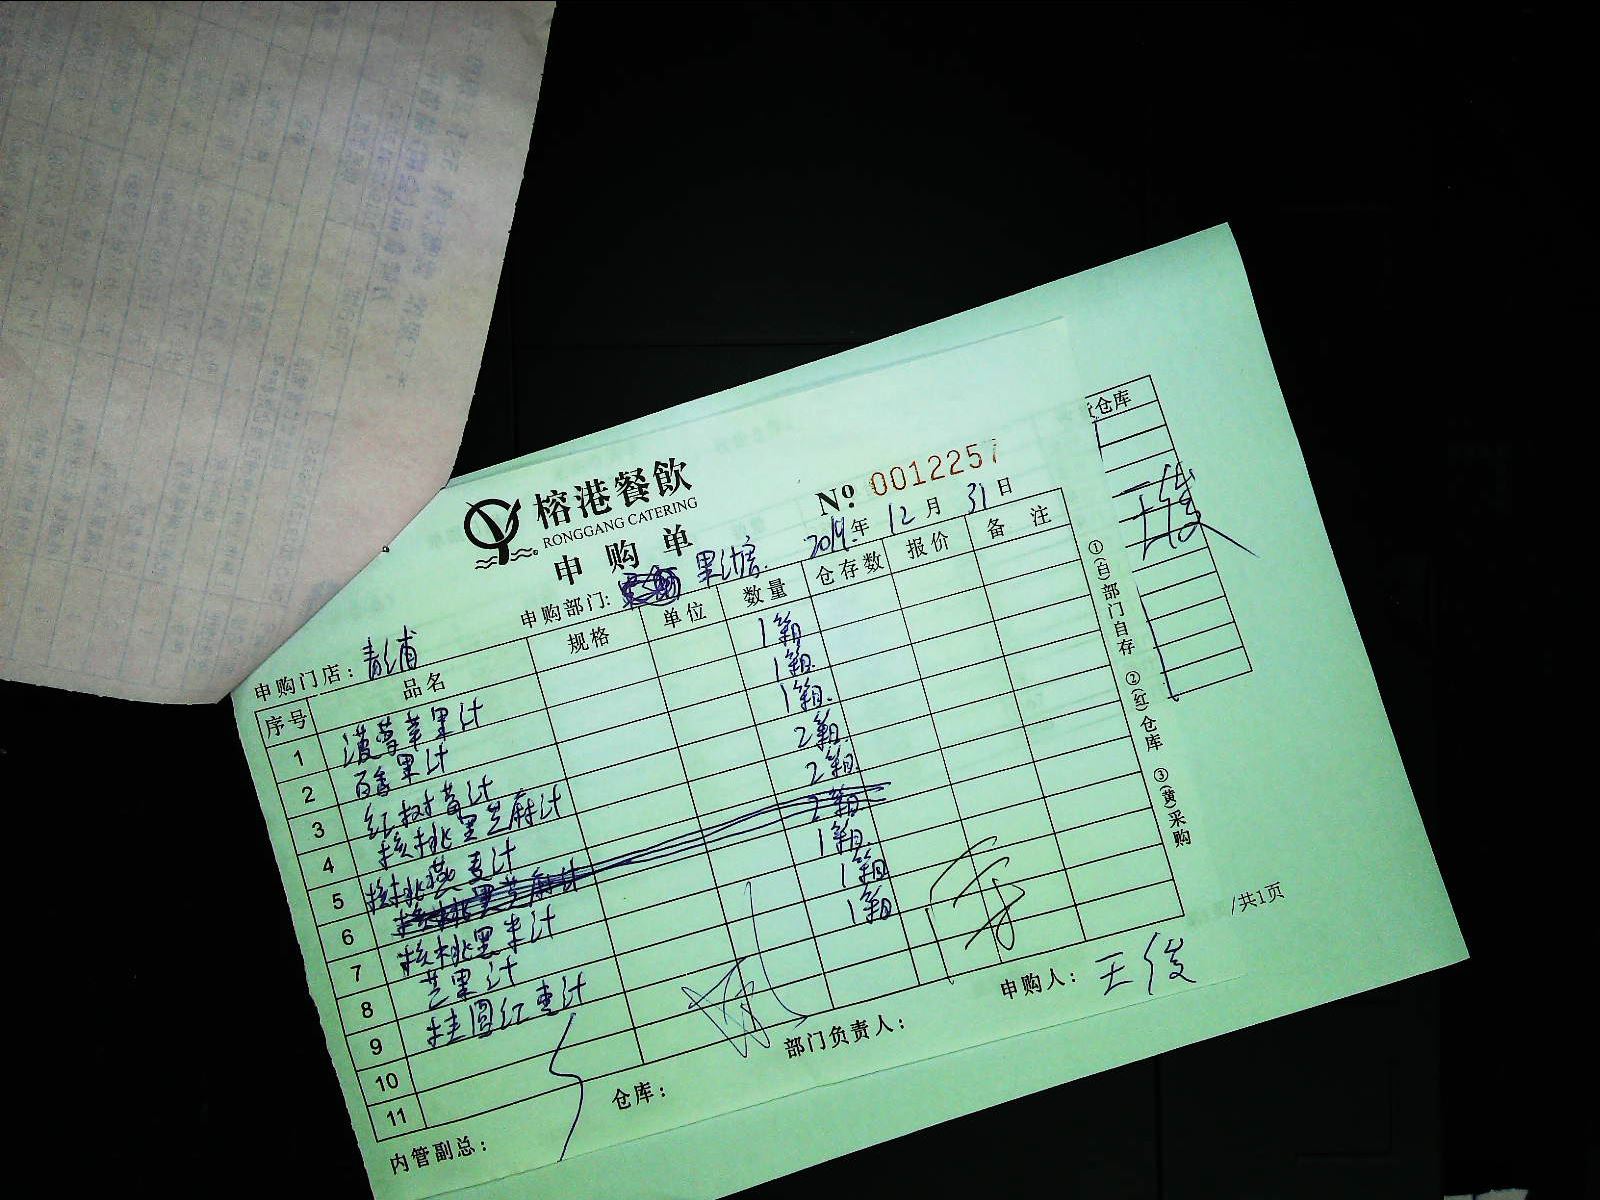 榕港餐飲
RONGGANG CATERING
申购单
№ 0012257
申购门店：青浦 申购部门: 果汁 2019年12月31日
序号 品名 规格 单位 数量 仓存数 报价 备注
1 菠萝苹果汁 1箱
2 百香果汁 1箱
3 红树莓汁 1箱
4 核桃黑芝麻汁 2箱
5 核桃燕麦汁 2箱
6 核桃黑芝麻汁 2箱
7 核桃黑米汁 1箱
8 芒果汁 1箱
9 桂圆红枣汁 1箱
10
11
内管副总： 仓库： 部门负责人： 申购人：王俊
①(白)部门自存 ②(红)仓库 ③(黄)采购
仓库
王俊
/共1页